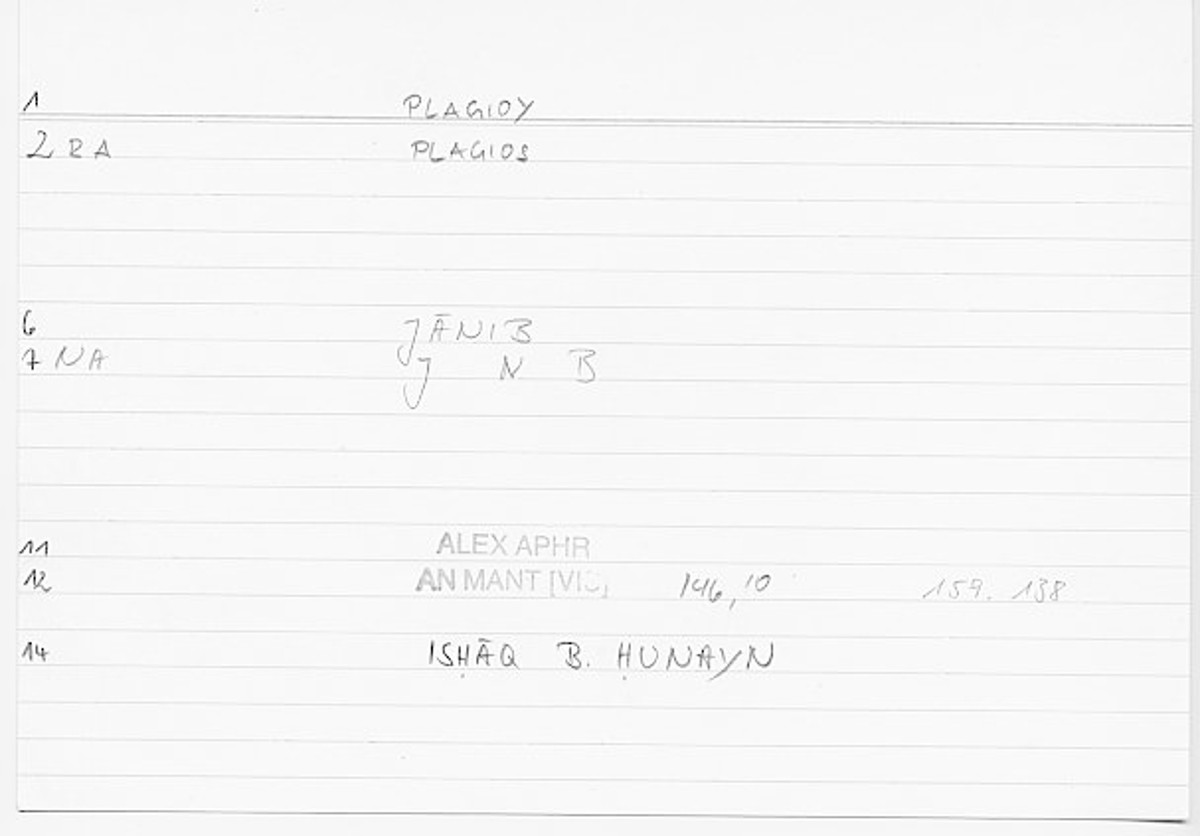 1 PLAGIOY
2 RA PLAGIOS
6 JĀNIB
7 NA J N B
11 ALEX APHR
12 AN MANT [VIC] 146,10 159. 138
14 ISḤĀQ B. ḤUNAYN